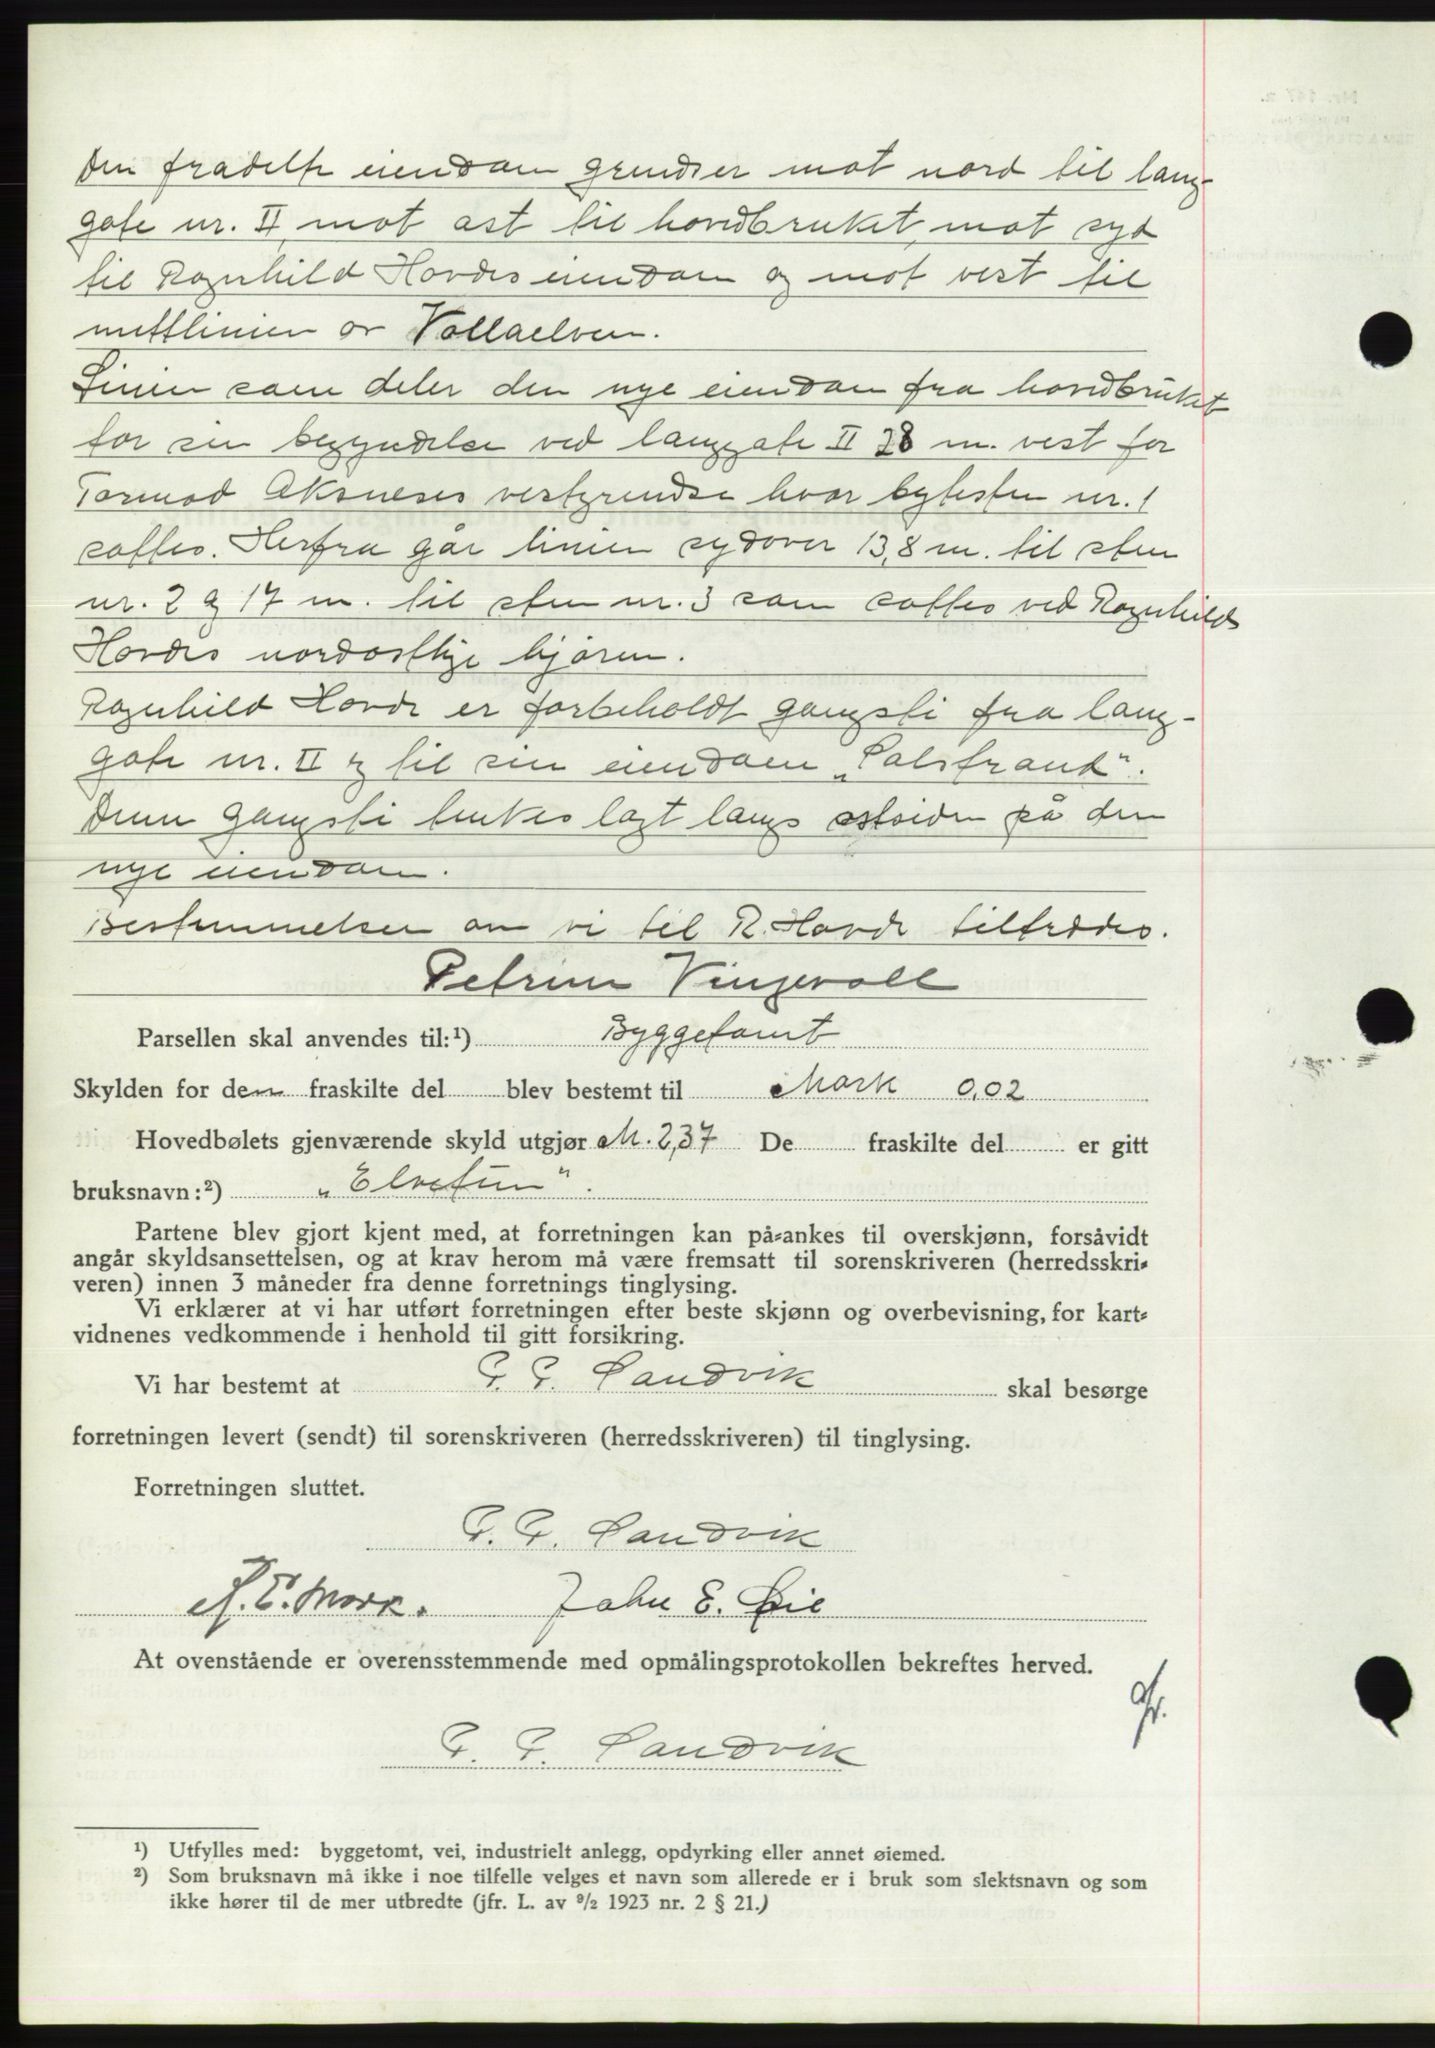 Den fradelte eiendom grendser mot nord til lang-
gate nr. II, mot ost til hovedbruket, mot syd
til Ragnhild Hovdes eiendom og mot vest til
mittlinien av Vollaelven.
Linien som deler den nye eiendom fra hovedbruket
tar sin begyndelse ved langgate II 28 m. vest for
Tormod Aksneses vestgrendse hvor bytesten nr. 1
sattes. Herfra går linien sydover 13,8 m. til sten
nr. 2 og 17 m. til sten nr. 3 som sattes ved Ragnhild
Hovdes nordostlige hjørne.
Ragnhild Hovde er forbeholdt gangsti fra lang-
gate nr. II og til sin eiendom „Solstrand".
Denne gangsti tenkes lagt langs ostsiden på den
nye eiendom.
Bestemmelsen om vi til R. Hovde tiltrædes.
Petrine Vingevoll
Parsellen skal anvendes til:¹) Byggetomt
Skylden for den fraskilte del blev bestemt til Mark 0,02
Hovedbølets gjenværende skyld utgjør M. 2,37 De fraskilte del er gitt
bruksnavn:²) „Elvetun".
Partene blev gjort kjent med, at forretningen kan på-ankes til overskjønn, forsåvidt
angår skyldsansettelsen, og at krav herom må være fremsatt til sorenskriveren (herredsskri-
veren) innen 3 måneder fra denne forretnings tinglysing.
Vi erklærer at vi har utført forretningen efter beste skjønn og overbevisning, for kart-
vidnenes vedkommende i henhold til gitt forsikring.
Vi har bestemt at P. P. Sandvik skal besørge
forretningen levert (sendt) til sorenskriveren (herredsskriveren) til tinglysing.
Forretningen sluttet.
P. P. Sandvik
A. E. Mork. John E. Øie
At ovenstående er overensstemmende med opmålingsprotokollen bekreftes herved.
P. P. Sandvik
¹) Utfylles med: byggetomt, vei, industrielt anlegg, opdyrking eller annet øiemed.
²) Som bruksnavn må ikke i noe tilfelle velges et navn som allerede er i bruk som slektsnavn og som
ikke hører til de mer utbredte (jfr. L. av ⁹/₂ 1923 nr. 2 § 21.)